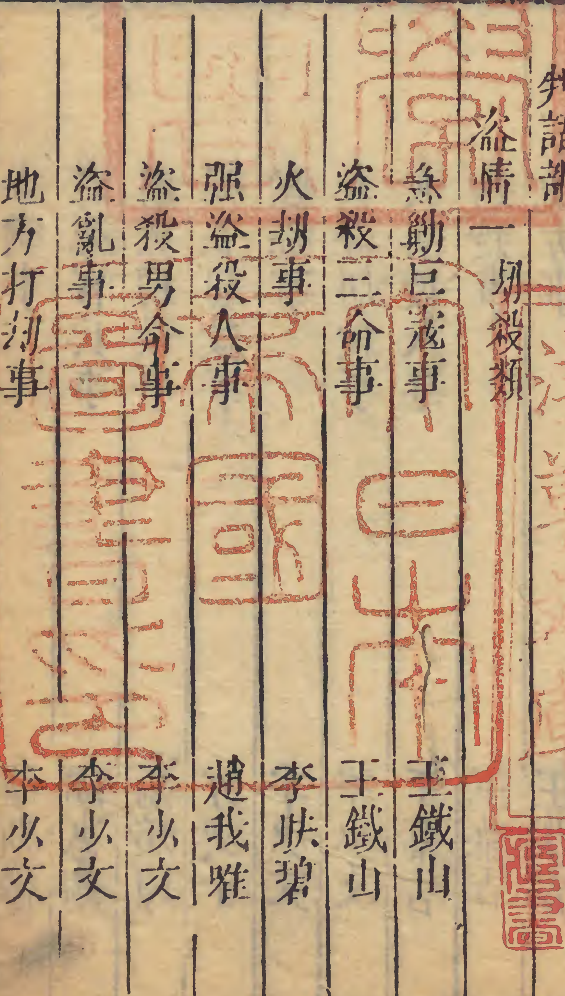 判語部
盜情一 刼殺類
急勦巨寇事 王鐵山
盜殺二命事 王鐵山
火刼事 李映碧
强盜殺人事 趙我唯
盜殺男命事 李少文
盜亂事 李少文
地方打刼事 李少文